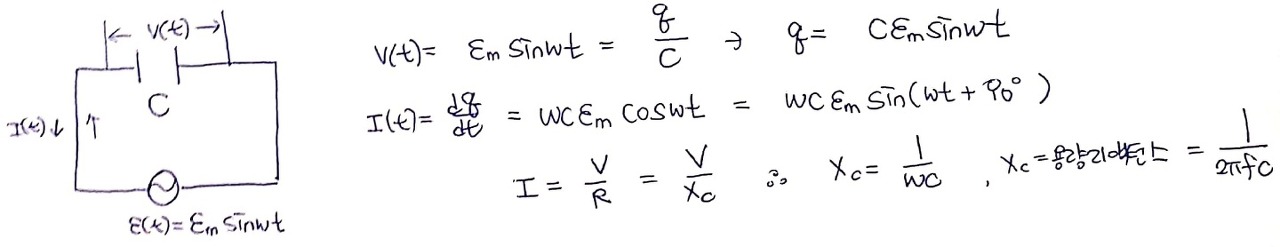 V(t)
C
I(t)↓ ↑
ε(t)= εm sinwt
V(t)= εm sinwt = q/C → q= Cεm sinwt
I(t)= dq/dt = wCεm coswt = wCεm sin(wt+90°)
I = V/R = V/Xc ∴ Xc= 1/wC , Xc=용량리액턴스 = 1/2πfC